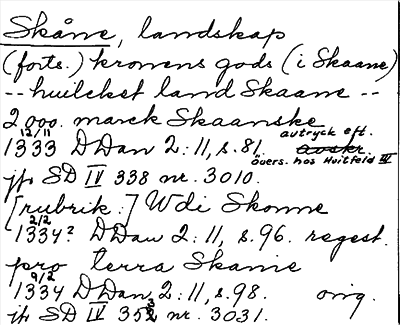 Skåne, landskap
(forts.) kronens gods (i Skaane)
-- huilcket land Skaane --
2000. marck Skaanske
12/11 avtryck eft.
1333 DDan 2:11, s. 81. avskr.
övers. hos Huitfeld IV
jfr SD IV 338 nr. 3010.
[rubrik:] Wdi Skonne
2/2
1334? DDan 2:11, s. 96. regest.
pro terra Skanie
9/2
1334 DDan 2:11, s. 98. orig.
jfr SD IV 353 nr. 3031.